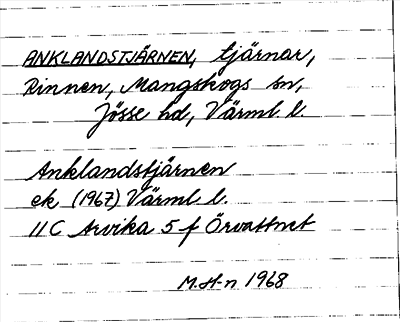 ANKLANDSTJÄRNEN, tjärnar,
Rinnen, Mangskogs sn,
Jösse hd, Värml. l.
Anklandstjärnen
ek (1967) Värml. l.
11C Arvika 5f Örvattnet
M.H-n 1968